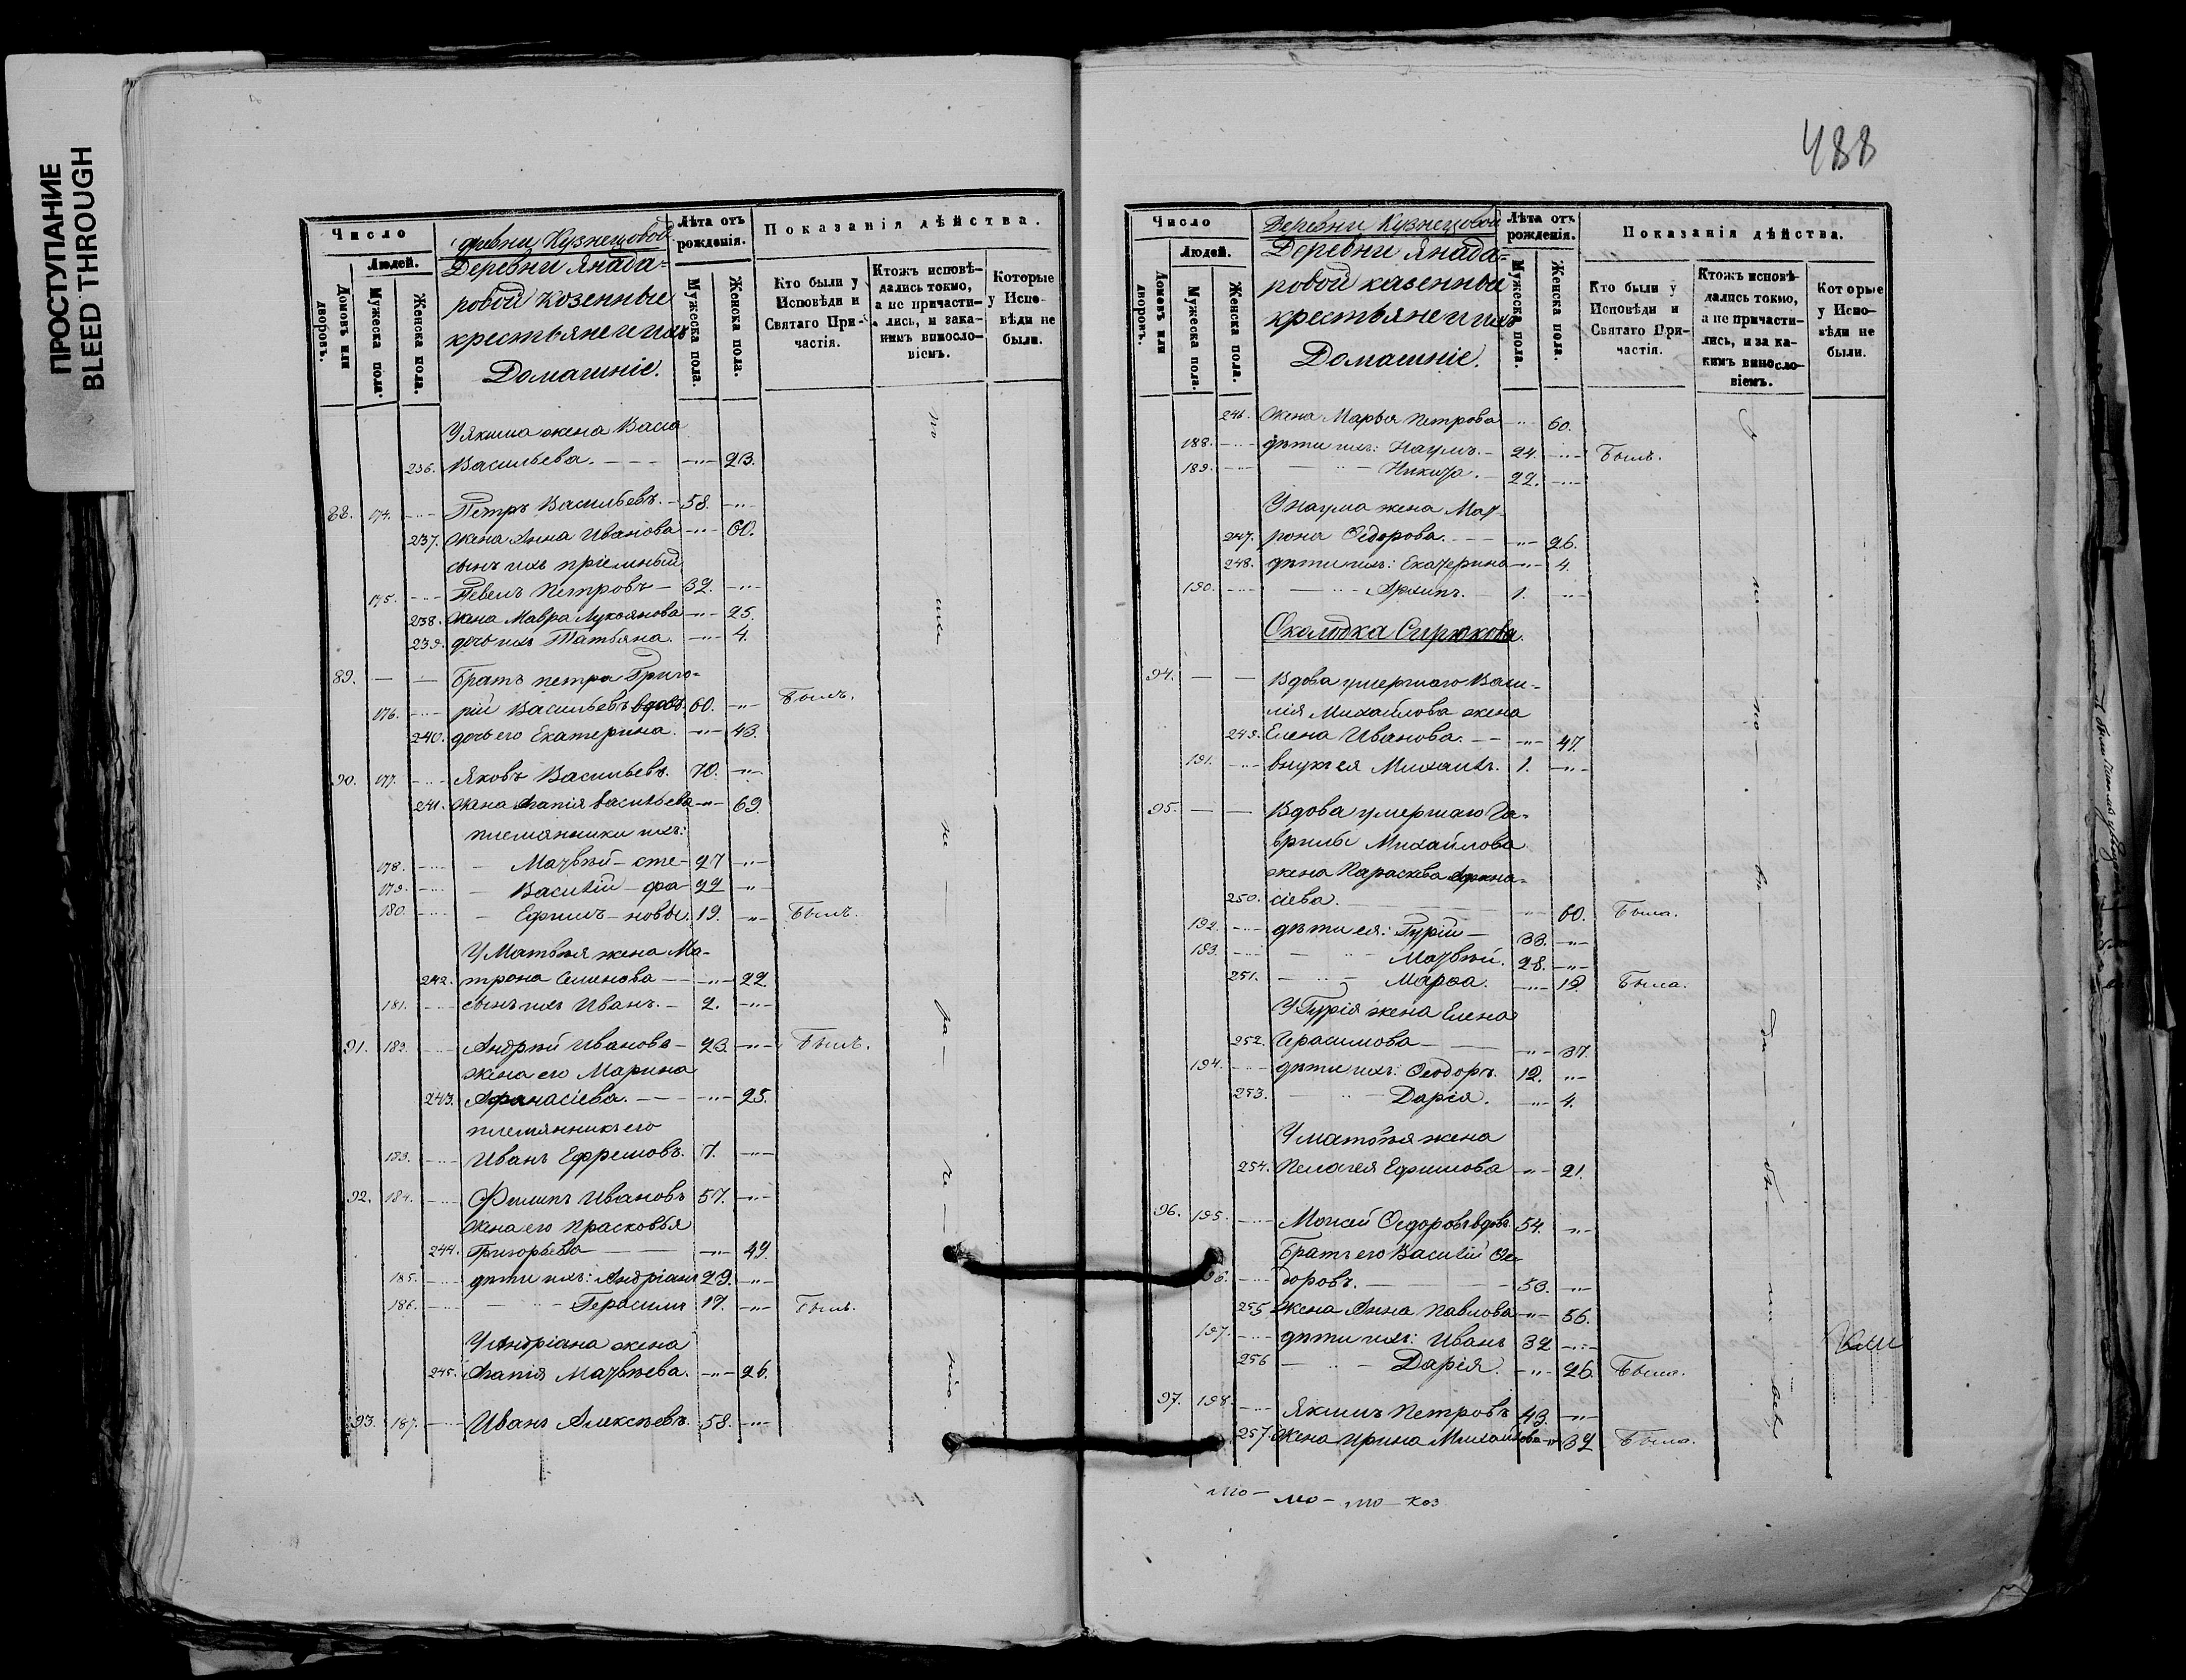 ПРОСТУПАНИЕ
BLEED THROUGH
Число
Людей.
Домовъ или дворовъ.
Мужеска пола.
Женска пола.
Деревни Янада=
ровой козенные
крестьяне и ихъ
Домашніе.
Лѣта отъ рожденія.
Мужеска пола.
Женска пола.
Показанія дѣйства.
Кто были у Исповѣди и Святаго Причастія.
Ктожъ исповѣдались токмо, а не причастились, и закакимъ винословіемъ.
Которые у Исповѣди не были.
У Якима жена Васса
236. Васильева. — -"- 23.
88. 174. -"- Петръ Васильевъ. 58. -"-
237. Жена Анна Иванова -"- 60.
сынъ ихъ пріемный
175. -"- Павелъ Петровъ — 32. -"-
238. Жена Мавра Лукоянова -"- 25.
239. дочь ихъ Татьяна. -"- 4.
89. — — Братъ петра Григо=
176. -"- рій Васильевъ вдовъ. 60. -"- Былъ.
240. дочь его Екатерина. -"- 43.
90. 177. -"- Яковъ Васильевъ. 70. -"-
241. Жена Агапія Васильева -"- 69.
племянники ихъ:
178. -"- — Матвѣй — сте- 27 -"-
179. -"- — Василій — фа- 22 -"-
180. -"- — Ефимъ — новы. 19. -"- Былъ.
У Матвѣя жена Ма-
242. трона Семенова — -"- 22.
181. -"- сынъ ихъ Иванъ. — 2. -"-
91. 182. -"- Андрей Иванова — 23. -"- Былъ.
жена его Марина
243. Афанасіева. — -"- 25.
племянникъ его
183. -"- Иванъ Ефремовъ. 7. -"-
92. 184. -"- Филипъ Ивановъ 57. -"-
Жена его Прасковья
244. Григорьева — -"- 49.
185. -"- дѣти ихъ: Андріанъ 29. -"-
186. -"- — -"- Герасимъ 17. -"- Былъ.
У Андріана жена
245. Агапія Матвѣева. -"- 26.
93. 187. -"- Иванъ Алексѣевъ. 58. -"-
488
Число
Людей.
Домовъ или дворовъ.
Мужеска пола.
Женска пола.
Деревни Кузнецовой
Деревни Янада=
ровой казенныи
крестьяне и ихъ
Домашніе.
Лѣта отъ рожденія.
Мужеска пола.
Женска пола.
Показанія дѣйства.
Кто были у Исповѣди и Святаго Причастія.
Ктожъ исповѣдались токмо, а не причастились, и за какимъ винословіемъ.
Которые у Исповѣди не были.
246. Жена Марья Петрова -"- 60.
188. -"- дѣти ихъ: Наумъ. — 24. -"- Былъ.
189. -"- — -"- Никита. 22. -"-
У Наума жена Мат-
247. рона Ѳедорова. — -"- 26.
248. дѣти ихъ: Екатерина -"- 4.
190. -"- — -"- Архипъ. 1. -"-
Околодка Сирюкова.
94. — — Вдова умершаго Васи=
лія Михайлова жена
249. Елена Иванова. — -"- 47.
191. -"- внукъ ея Михаилъ. 1. -"-
95. — — Вдова умершаго Га=
врилы Михайлова
жена Параскева Афана=
250. сіева. -"- 60. Была.
192. -"- дѣти ея: Гурій — 33. -"-
193. -"- — -"- Матвѣй. 28. -"-
251. — -"- Марѳа. -"- 19. Была.
У Гурія жена Елена
252. Герасимова — -"- 37.
194. -"- дѣти ихъ: Ѳеодоръ. 12. -"-
253. — -"- Дарія. -"- 4.
У матвѣя жена
254. Пелагея Ефимова -"- 21.
96. 195. -"- Моисей Ѳедоровъ вдовъ. 54. -"-
Братъ его Василій Ѳе-
196. -"- доровъ. — 53. -"-
255 Жена Анна Павлова -"- 56.
197. -"- дѣти ихъ: Иванъ 32 -"-
256 — -"- Дарія. -"- 26. Была.
97. 198. -"- Якимъ Петровъ 43. -"-
257. Жена Ирина Михайлова -"- 32 Была.